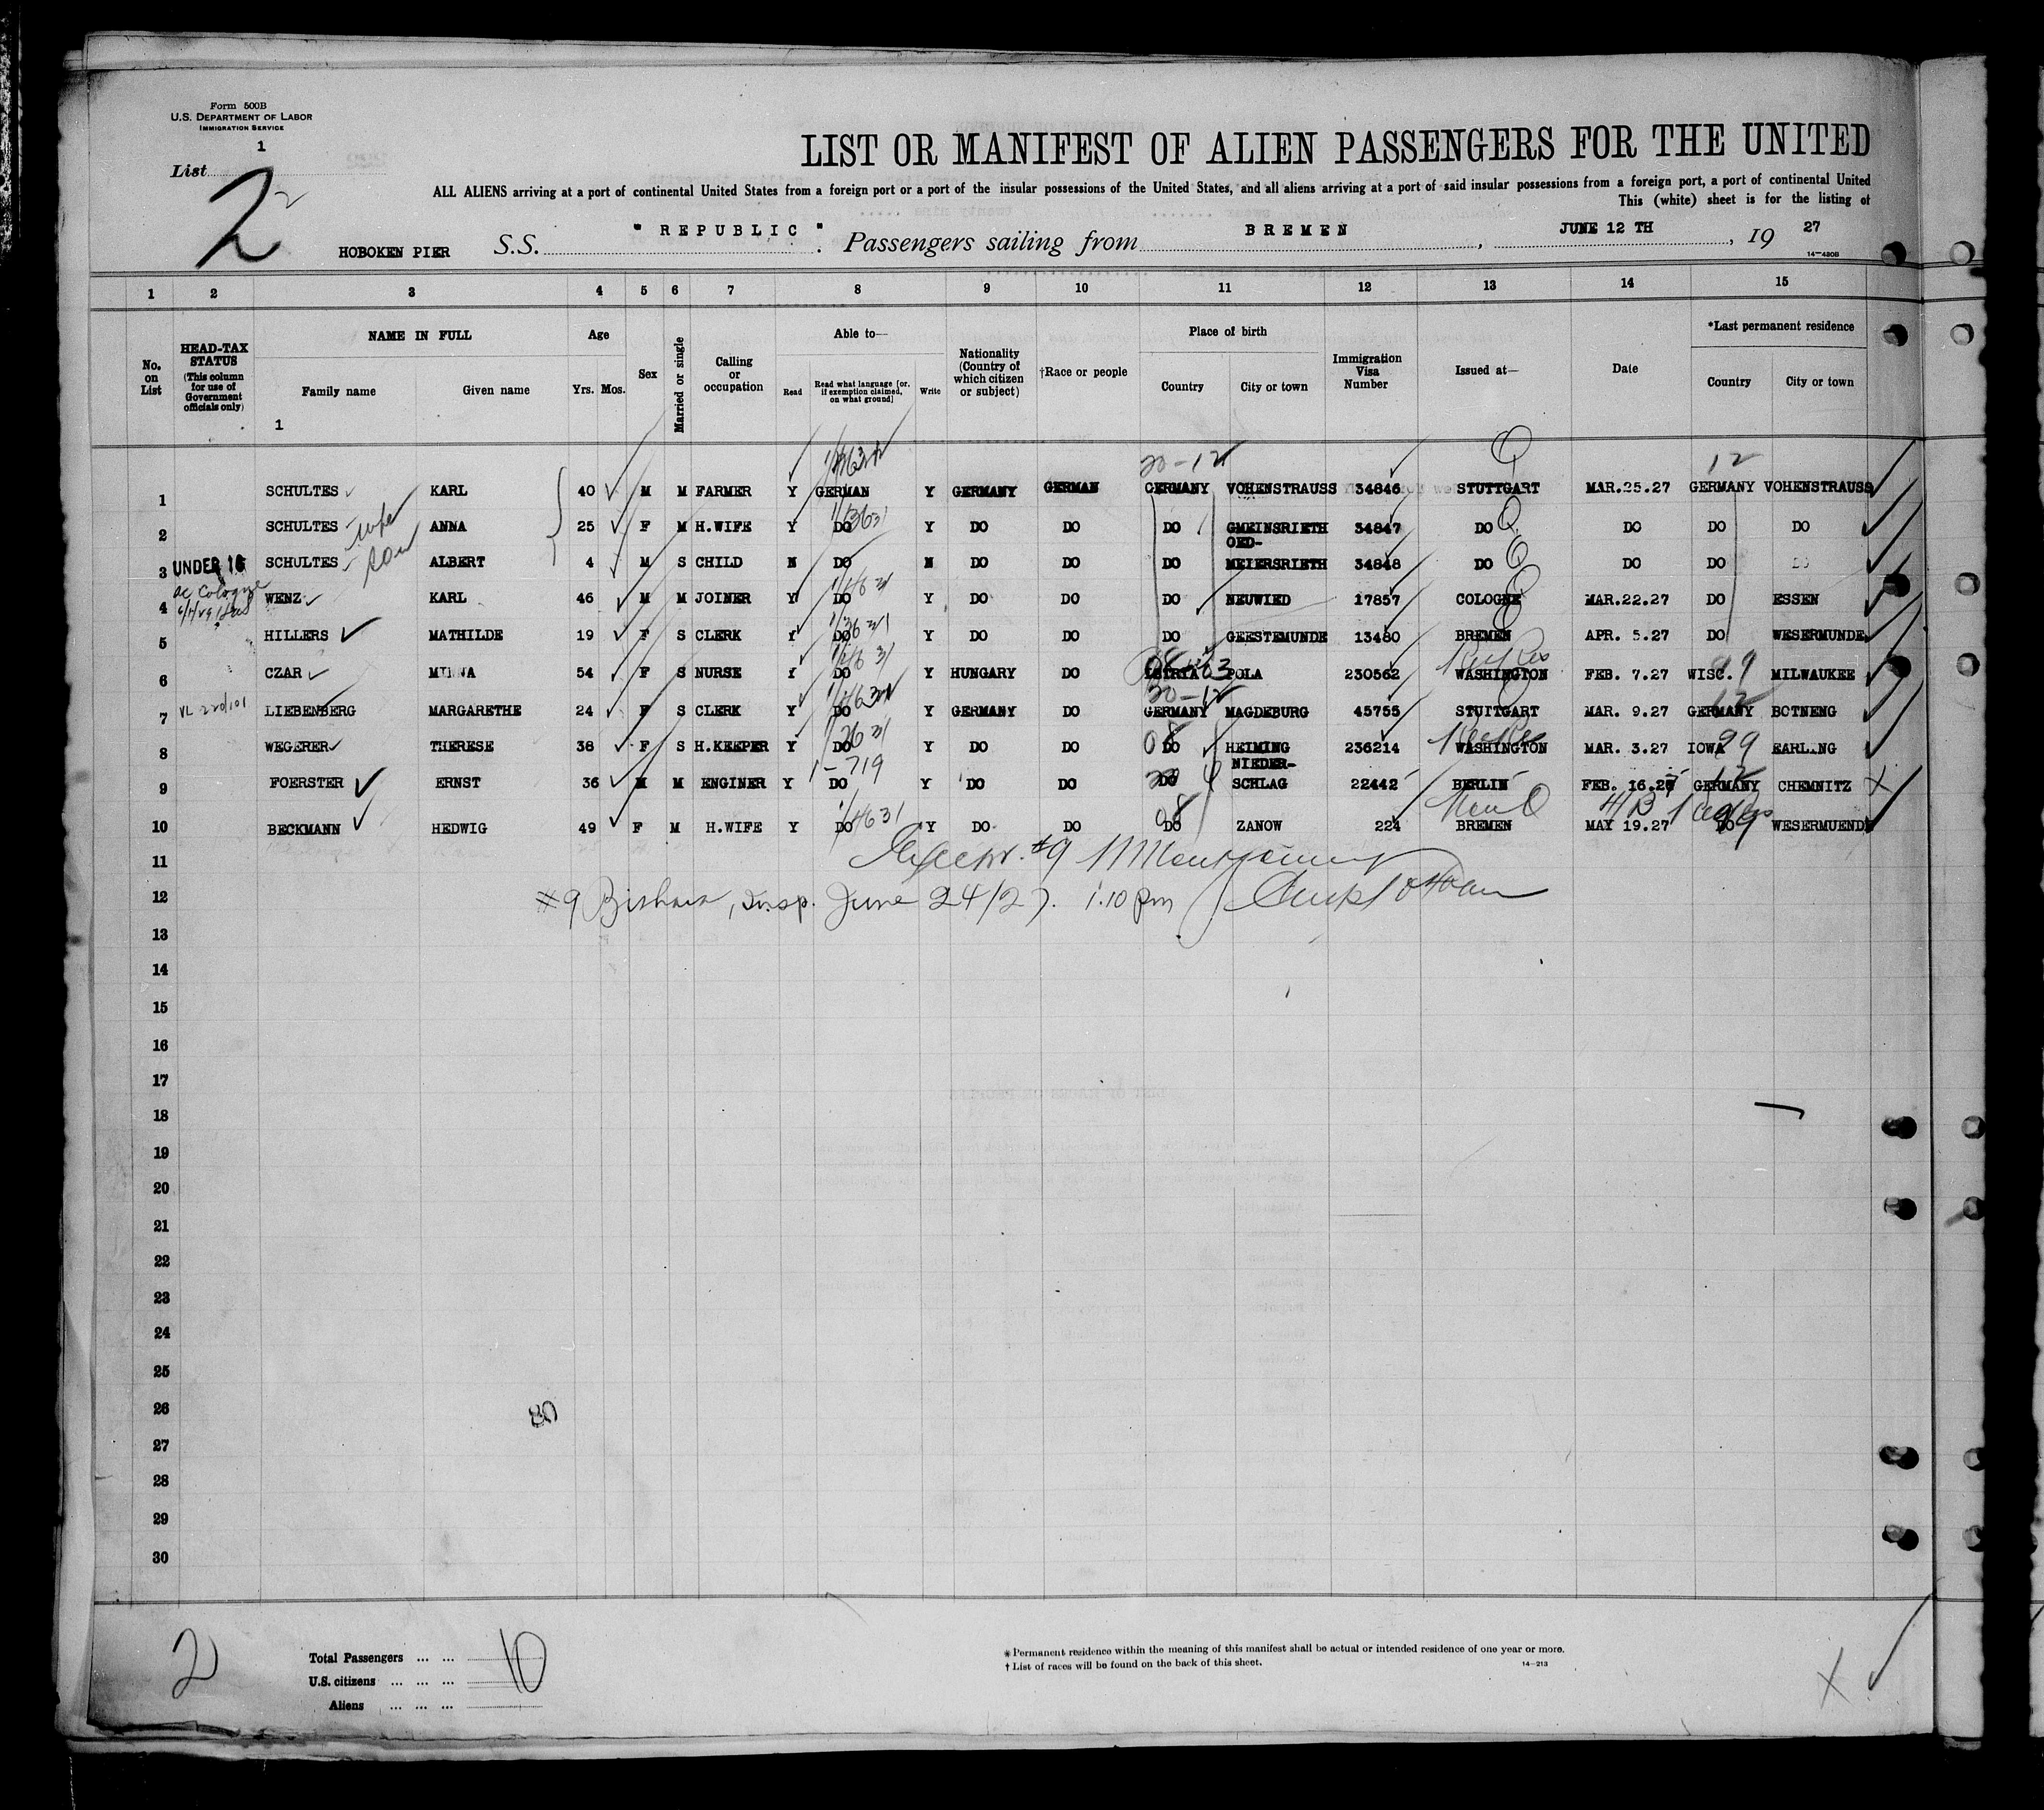 Form 500B
U.S. DEPARTMENT OF LABOR
IMMIGRATION SERVICE
1
List
2
LIST OR MANIFEST OF ALIEN PASSENGERS FOR THE UNITED
ALL ALIENS arriving at a port of continental United States from a foreign port or a port of the insular possessions of the United States, and all aliens arriving at a port of said insular possessions from a foreign port, a port of continental United
This (white) sheet is for the listing of
HOBOKEN PIER S.S. "REPUBLIC". Passengers sailing from BREMEN, JUNE 12 TH, 19 27
14—430B
1 2 3 4 5 6 7 8 9 10 11 12 13 14 15
No. on List
HEAD-TAX STATUS (This column for use of Government officials only)
NAME IN FULL Family name Given name
Age Yrs. Mos.
Sex
Married or single
Calling or occupation
Able to— Read Read what language [or, if exemption claimed, on what ground] Write
Nationality (Country of which citizen or subject)
†Race or people
Place of birth Country City or town
Immigration Visa Number
Issued at—
Date
*Last permanent residence Country City or town
1
20-12 12
1 SCHULTES KARL 40 M M FARMER Y GERMAN Y GERMANY GERMAN GERMANY VOHENSTRAUSS 34846 STUTTGART MAR.25.27 GERMANY VOHENSTRAUSS
2 SCHULTES wife ANNA 25 F M H.WIFE Y DO Y DO DO DO GMEINSRIETH 34847 DO DO DO DO
OED-
3 UNDER 16 SCHULTES son ALBERT 4 M S CHILD N DO N DO DO DO MEIERSRIETH 34848 DO DO DO DO
4 WENZ KARL 46 M M JOINER Y DO Y DO DO DO NEUWIED 17857 COLOGNE MAR.22.27 DO ESSEN
5 HILLERS MATHILDE 19 F S CLERK Y DO Y DO DO DO GEESTEMUNDE 13480 BREMEN APR. 5.27 DO WESERMUNDE
6 CZAR MINNA 54 F S NURSE Y DO Y HUNGARY DO ISTRIA POLA 230562 WASHINGTON FEB. 7.27 WISC. MILWAUKEE
20-12
7 VL 220/101 LIEBENBERG MARGARETHE 24 F S CLERK Y DO Y GERMANY DO GERMANY MAGDEBURG 45755 STUTTGART MAR. 9.27 GERMANY BOTNENG
8 WEGERER THERESE 38 F S H.KEEPER Y DO Y DO DO DO HEIMING 236214 WASHINGTON MAR. 3.27 IOWA EARLING
1-719 NIEDER-
9 FOERSTER ERNST 36 M M ENGINER Y DO Y DO DO DO SCHLAG 22442 BERLIN FEB. 16.27 GERMANY CHEMNITZ X
10 BECKMANN HEDWIG 49 F M H.WIFE Y DO Y DO DO DO ZANOW 224 BREMEN MAY 19.27 DO WESERMUENDE
11 Except #9
12 #9 Insp. June 24/27. 1.10 pm
13
14
15
16
17
18
19
20
21
22
23
24
25
26
27
28
29
30
2
Total Passengers ... ... 10
U.S. citizens ... ... ...
Aliens ... ... ...
* Permanent residence within the meaning of this manifest shall be actual or intended residence of one year or more.
† List of races will be found on the back of this sheet.
14—213
X